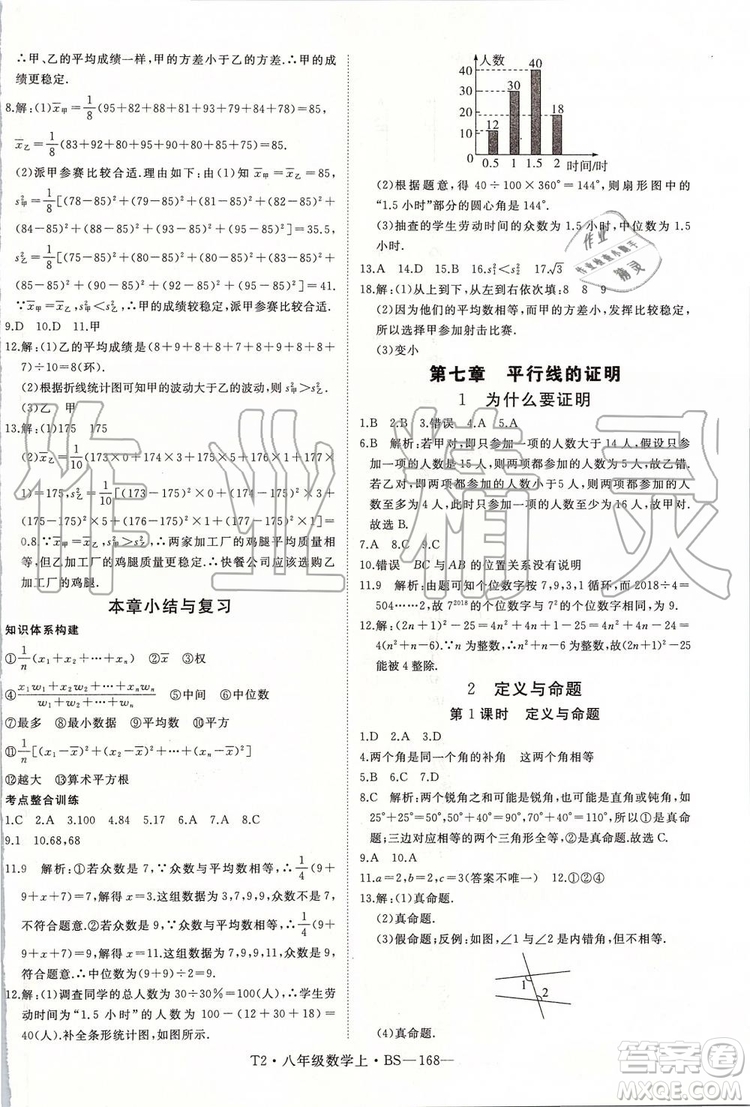 ∴甲、乙的平均成绩一样，甲的方差小于乙的方差.∴甲的成
绩更稳定.
8.解：(1)x̄甲=1/8(95+82+88+81+93+79+84+78)=85，
x̄乙=1/8(83+92+80+95+90+80+85+75)=85.
(2)派甲参赛比较合适.理由如下：∵s²甲=
1/8[(78-85)²+(79-85)²+(81-85)²+(82-85)²+
(84-85)²+(88-85)²+(93-85)²+(95-85)²]=35.5，
s²乙=1/8[(75-85)²+(80-85)²+(80-85)²+(83-85)²+
(85-85)²+(90-85)²+(92-85)²+(95-85)²]=41，
∴x̄甲=x̄乙，s²甲<s²乙.∴甲的成绩较稳定，派甲参赛比较合适.
9.D 10.D 11.甲
12.解：(1)乙的平均成绩是(8+9+8+8+7+8+9+8+8+
7)÷10=8(环).
(2)根据折线统计图可知甲的波动大于乙的波动，则s²甲>s²乙.
(3)乙 甲
13.解：(1)175 175
(2)s²乙=1/10[(173×0+173×1+174×2+
(175-175)²×4+(176-175)²×3+(177-175)²×
0.8.∵s²甲>s²乙，∴两家加工厂的鸡腿质量大致相等，但乙
加工厂的鸡腿质量更稳定.因此快餐公司应该选购乙
加工厂的鸡腿.
本章小结与复习
知识体系构建
①1/n(x₁+x₂+…+xₙ) ②x̄ ③权
④(x₁w₁+x₂w₂+…+xₙwₙ)/(w₁+w₂+…+wₙ) ⑤中间 ⑥中位数
⑦最多 ⑧最小数据 ⑨平方 ⑩平均数
⑪1/n[(x₁-x̄)²+(x₂-x̄)²+…+(xₙ-x̄)²]
⑫越大 ⑬算术平方根
考点整合训练
1.C 2.A 3.100 4.84 5.17 6.A 7.A 8.C
9.1 10.68，68
11.9 解析：①若众数是7，∵众数与平均数相等，∴1/4(9+
9+x+7)=7，解得x=3.这组数据为3，7，9，9，众数为9，
不符合题意，舍去；②若众数为9，∵众数与平均数相等，∴1/4(9+
9+x+7)=9，解得x=11.这组数据为7，9，9，11，符合
题意.∴中位数为(9+9)÷2=9.
12.解：(1)调查同学的总人数为30÷30%=100，∴学生劳
动时间为“1.5小时”的人数为100-(12+30+18)=
40(人).补全条形统计图如图所示.
人数
40
30
20
10
0
12
30
40
18
0.5 1 1.5 2 时间/时
(2)根据题意，得40÷100×360°=144°，则扇形图中的
“1.5小时”部分的圆心角为144°.
(3)抽查的学生劳动时间的众数为1.5小时，中位数为1.5
小时.
13.A 14.D 15.B 16.s₁²<s₂² 17.√3
18.解：(1)从上到下，从左到右依次填：8 8 9
(2)因为他们的平均数相等，而甲的方差小，发挥比较稳定，
所以选择甲参加射击比赛.
(3)变小
第七章 平行线的证明
1 为什么要证明
1.B 2.B 3.错误 4.A 5.A
6.B 解析：若甲对，即只参加一项的人数大于14人，假设只
参加一项的人数是15人，则两项都参加的人数为5人，故乙错.
若乙对，即两项都参加的人数小于5人，则两项都参加的人
数至多为4人，此时只参加一项的人数为16人，故甲对.
故选B.
7.A 8.C 9.C
10.错误 BC与AB的位置关系没有说明
11.9 解析：由题可知个位数字按7，9，3，1循环，而2018÷4=
504……2，∴7²⁰¹⁸的个位数字是9.
12.证明：(2n+1)²-25=4n²+4n+1-25=4n²+4n-24=
4(n²+n-6).∵n为整数，∴4(n²+n-6)一定是4的倍数，即
能被4整除.
2 定义与命题
第1课时 定义与命题
1.D 2.A 3.D
4.两个角是同一个角的补角 这两个角相等
5.B 6.C 7.D
8.C 解析：两个锐角之和可能是锐角，也可能是直角或钝角，如
25°+25°=50°，50°+40°=90°，60°+70°=130°，故C是假命
题；三边对应相等的两个三角形全等，故D是真命题.
9.A 10.A
11.a=2，b=2，c=3(答案不唯一) 12.①②④
13.解：(1)真命题.
(2)真命题.
(3)假命题；反例：如图，∠1与∠2是内错角，但不相等.
1
2
(4)真命题.
T2·八年级数学上·BS—168—
作业精灵
MXQE.COM